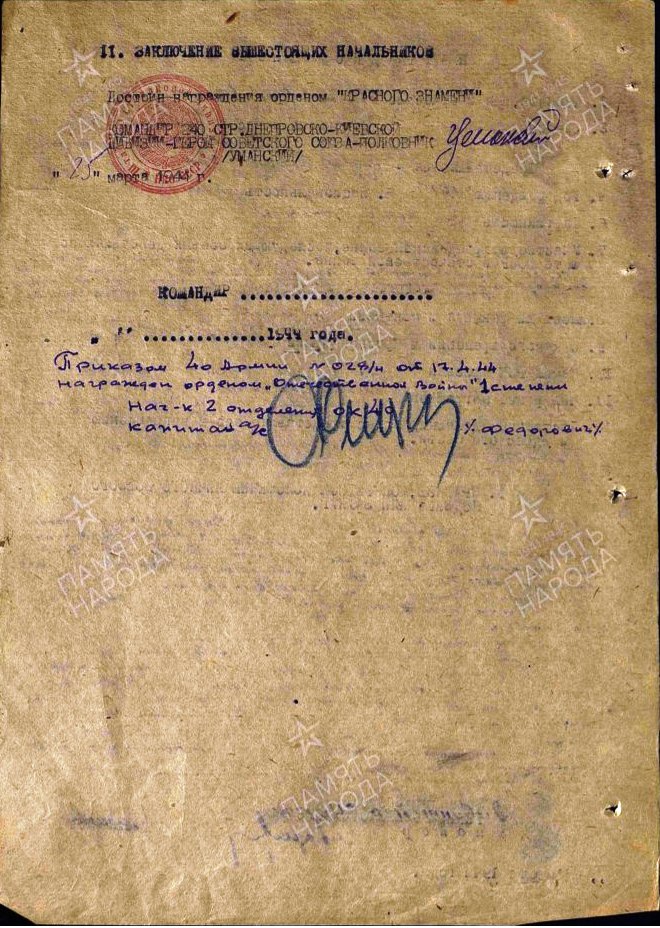 II. ЗАКЛЮЧЕНИЕ ВЫШЕСТОЯЩИХ НАЧАЛЬНИКОВ
Достоин награждения орденом "КРАСНОГО ЗНАМЕНИ"
КОМАНДИР 240 СТР.ДНЕПРОВСКО-КИЕВСКОЙ
ДИВИЗИИ-ГЕРОЙ СОВЕТСКОГО СОЮЗА-ПОЛКОВНИК
/УМАНСКИЙ/
"25" марта 1944 г.
КОМАНДИР ......................
" " ...............1944 года.
Приказом 40 Армии № 029/н от 17.4.44
награжден орденом „Отечественная Война" 1 степени
нач-к 2 отделения ок 40
капитан а/с /Федорович/
ПАМЯТЬ НАРОДА
ПАМЯТЬ НАРОДА
ПАМЯТЬ НАРОДА
ПАМЯТЬ НАРОДА
ПАМЯТЬ НАРОДА
ПАМЯТЬ НАРОДА